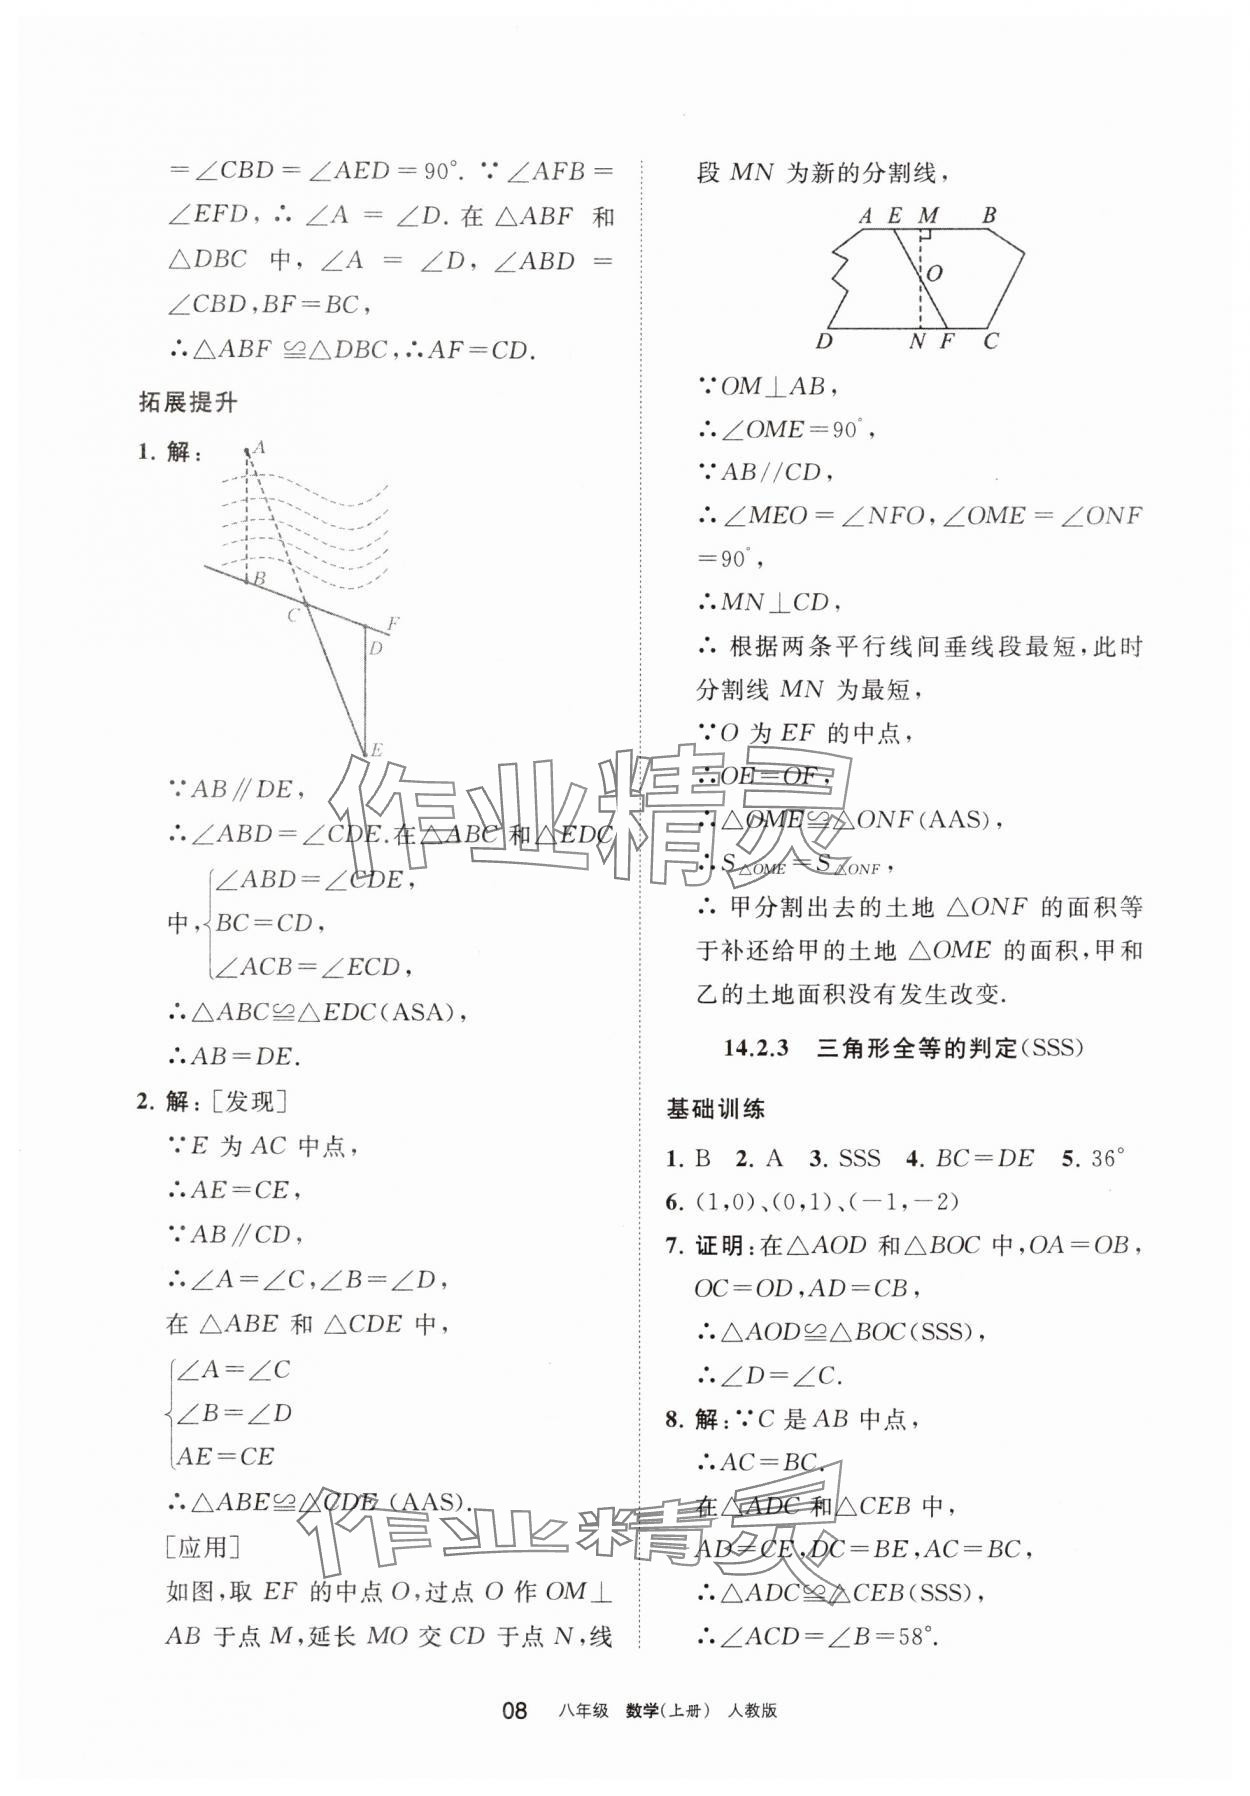 =∠CBD=∠AED=90°. ∵∠AFB=
∠EFD,∴∠A=∠D.在△ABF 和
△DBC 中,∠A=∠D,∠ABD=
∠CBD,BF=BC,
∴△ABF≌△DBC,∴AF=CD.
拓展提升
1. 解:
A
B
C
F
D
E
∵AB∥DE,
∴∠ABD=∠CDE.在△ABC 和△EDC
∠ABD=∠CDE,
中,{BC=CD,
∠ACB=∠ECD,
∴△ABC≌△EDC(ASA),
∴AB=DE.
2. 解:[发现]
∵E 为 AC 中点,
∴AE=CE,
∵AB∥CD,
∴∠A=∠C,∠B=∠D,
在△ABE 和△CDE 中,
{∠A=∠C
∠B=∠D
AE=CE
∴△ABE≌△CDE (AAS).
[应用]
如图,取 EF 的中点 O,过点 O 作 OM⊥
AB 于点 M,延长 MO 交 CD 于点 N,线
段 MN 为新的分割线,
A E M B
O
D N F C
∵OM⊥AB,
∴∠OME=90°,
∵AB//CD,
∴∠MEO=∠NFO,∠OME=∠ONF
=90°,
∴MN⊥CD,
∴根据两条平行线间垂线段最短,此时
分割线 MN 为最短,
∵O 为 EF 的中点,
∴OE=OF,
∴△OME≌△ONF(AAS),
∴S△OME=S△ONF,
∴甲分割出去的土地△ONF 的面积等
于补还给甲的土地△OME 的面积,甲和
乙的土地面积没有发生改变.
14.2.3 三角形全等的判定(SSS)
基础训练
1. B 2. A 3. SSS 4. BC=DE 5. 36°
6. (1,0)、(0,1)、(-1,-2)
7. 证明:在△AOD 和△BOC 中,OA=OB,
OC=OD,AD=CB,
∴△AOD≌△BOC(SSS),
∴∠D=∠C.
8. 解:∵C 是 AB 中点,
∴AC=BC.
在△ADC 和△CEB 中,
AD=CE,DC=BE,AC=BC,
∴△ADC≌△CEB(SSS),
∴∠ACD=∠B=58°.
作业精灵
作业精灵
08 八年级 数学(上册) 人教版